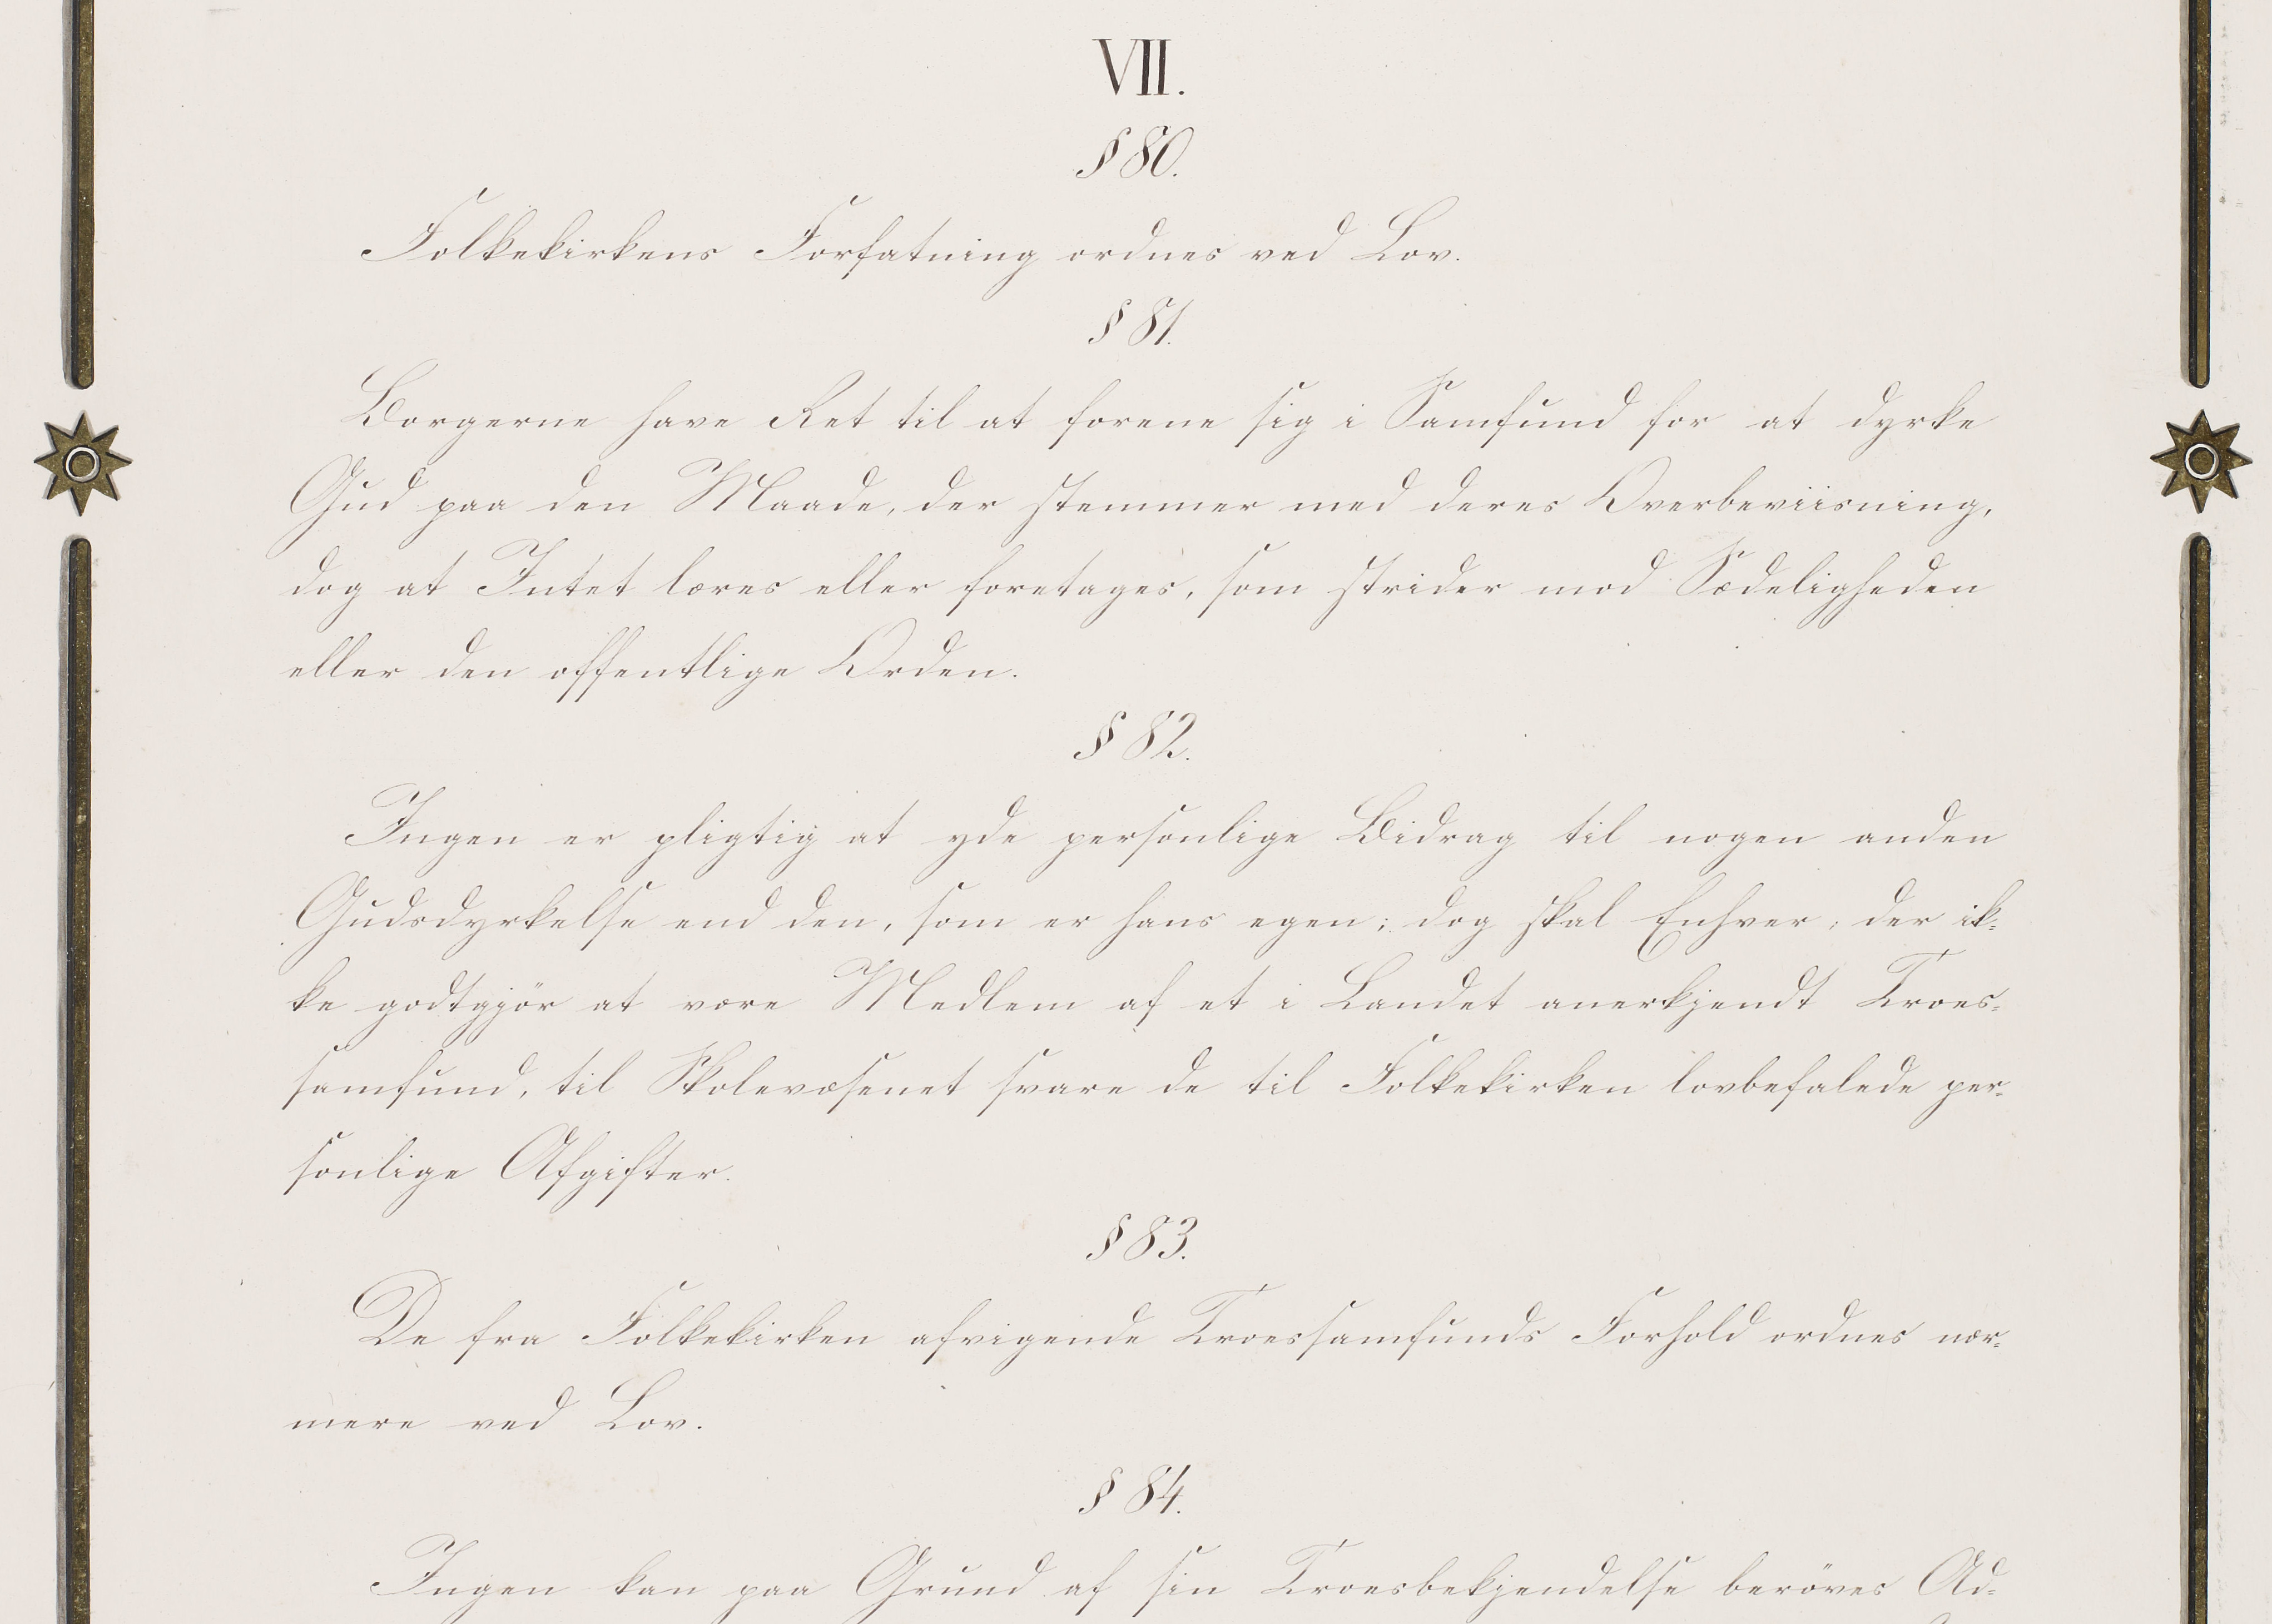 VII.
§ 80.
Folkekirkens Forfatning ordnes ved Lov.
§ 81.
Borgerne have Ret til at forene sig i Samfund for at dyrke
Gud paa den Maade, der stemmer med deres Overbeviisning,
dog at Intet læres eller foretages, som strider mod Sædeligheden
eller den offentlige Orden.
§ 82.
Ingen er pligtig at yde personlige Bidrag til nogen anden
Gudsdyrkelse end den, som er hans egen; dog skal Enhver, der ik-
ke godtgjör at være Medlem af et i Landet anerkjendt Troes-
samfund, til Skolevæsenet svare de til Folkekirken lovbefalede per-
sonlige Afgifter.
§ 83.
De fra Folkekirken afvigende Troessamfunds Forhold ordnes nær-
mere ved Lov.
§ 84.
Ingen kan paa Grund af sin Troesbekjendelse beröves Ad-